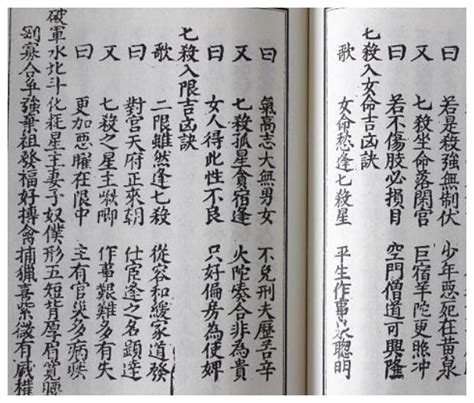 曰　若是殺強無制伏　少年惡死在黃泉
又　七殺坐命落閑宮　巨宿羊陀更照冲
曰　若不傷肢必損目　空門僧道可興隆
七殺入女命吉凶訣
歌　女命愁逢七殺星　平生作事聰明
曰　氣高志大無男女　不免刑夫歷苦辛
又　七殺孤星貪宿逢　火陀湊合非為貴
曰　女人得此性不良　只好偏房為使婢
七殺入限吉凶訣
歌　二限雖然逢七殺　從容和緩家道發
曰　對宮天府正來朝　仕宦逢之名顯達
又　七殺之星主啾唧　作事艱難多有失
曰　更加惡曜在限中　主有官災多病疾
破軍水北斗化耗星主妻子奴僕形五短背厚眉寬腰
剛寡合爭強棄祖發福好搏禽捕獵喜紫微有威權